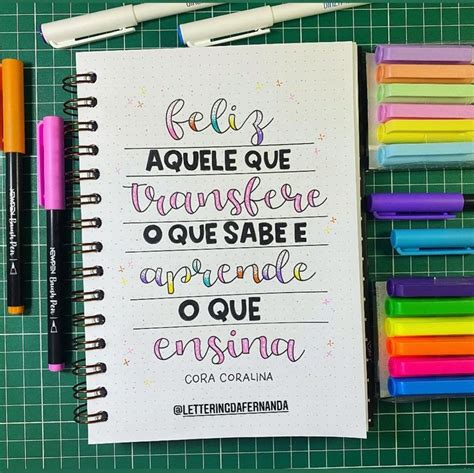 feliz
AQUELE QUE
transfere
O QUE SABE E
aprende
O QUE
ensina
CORA CORALINA
@LETTERINGDAFERNANDA
NEWPEN Brush Pen
NEWPEN Brush Pen